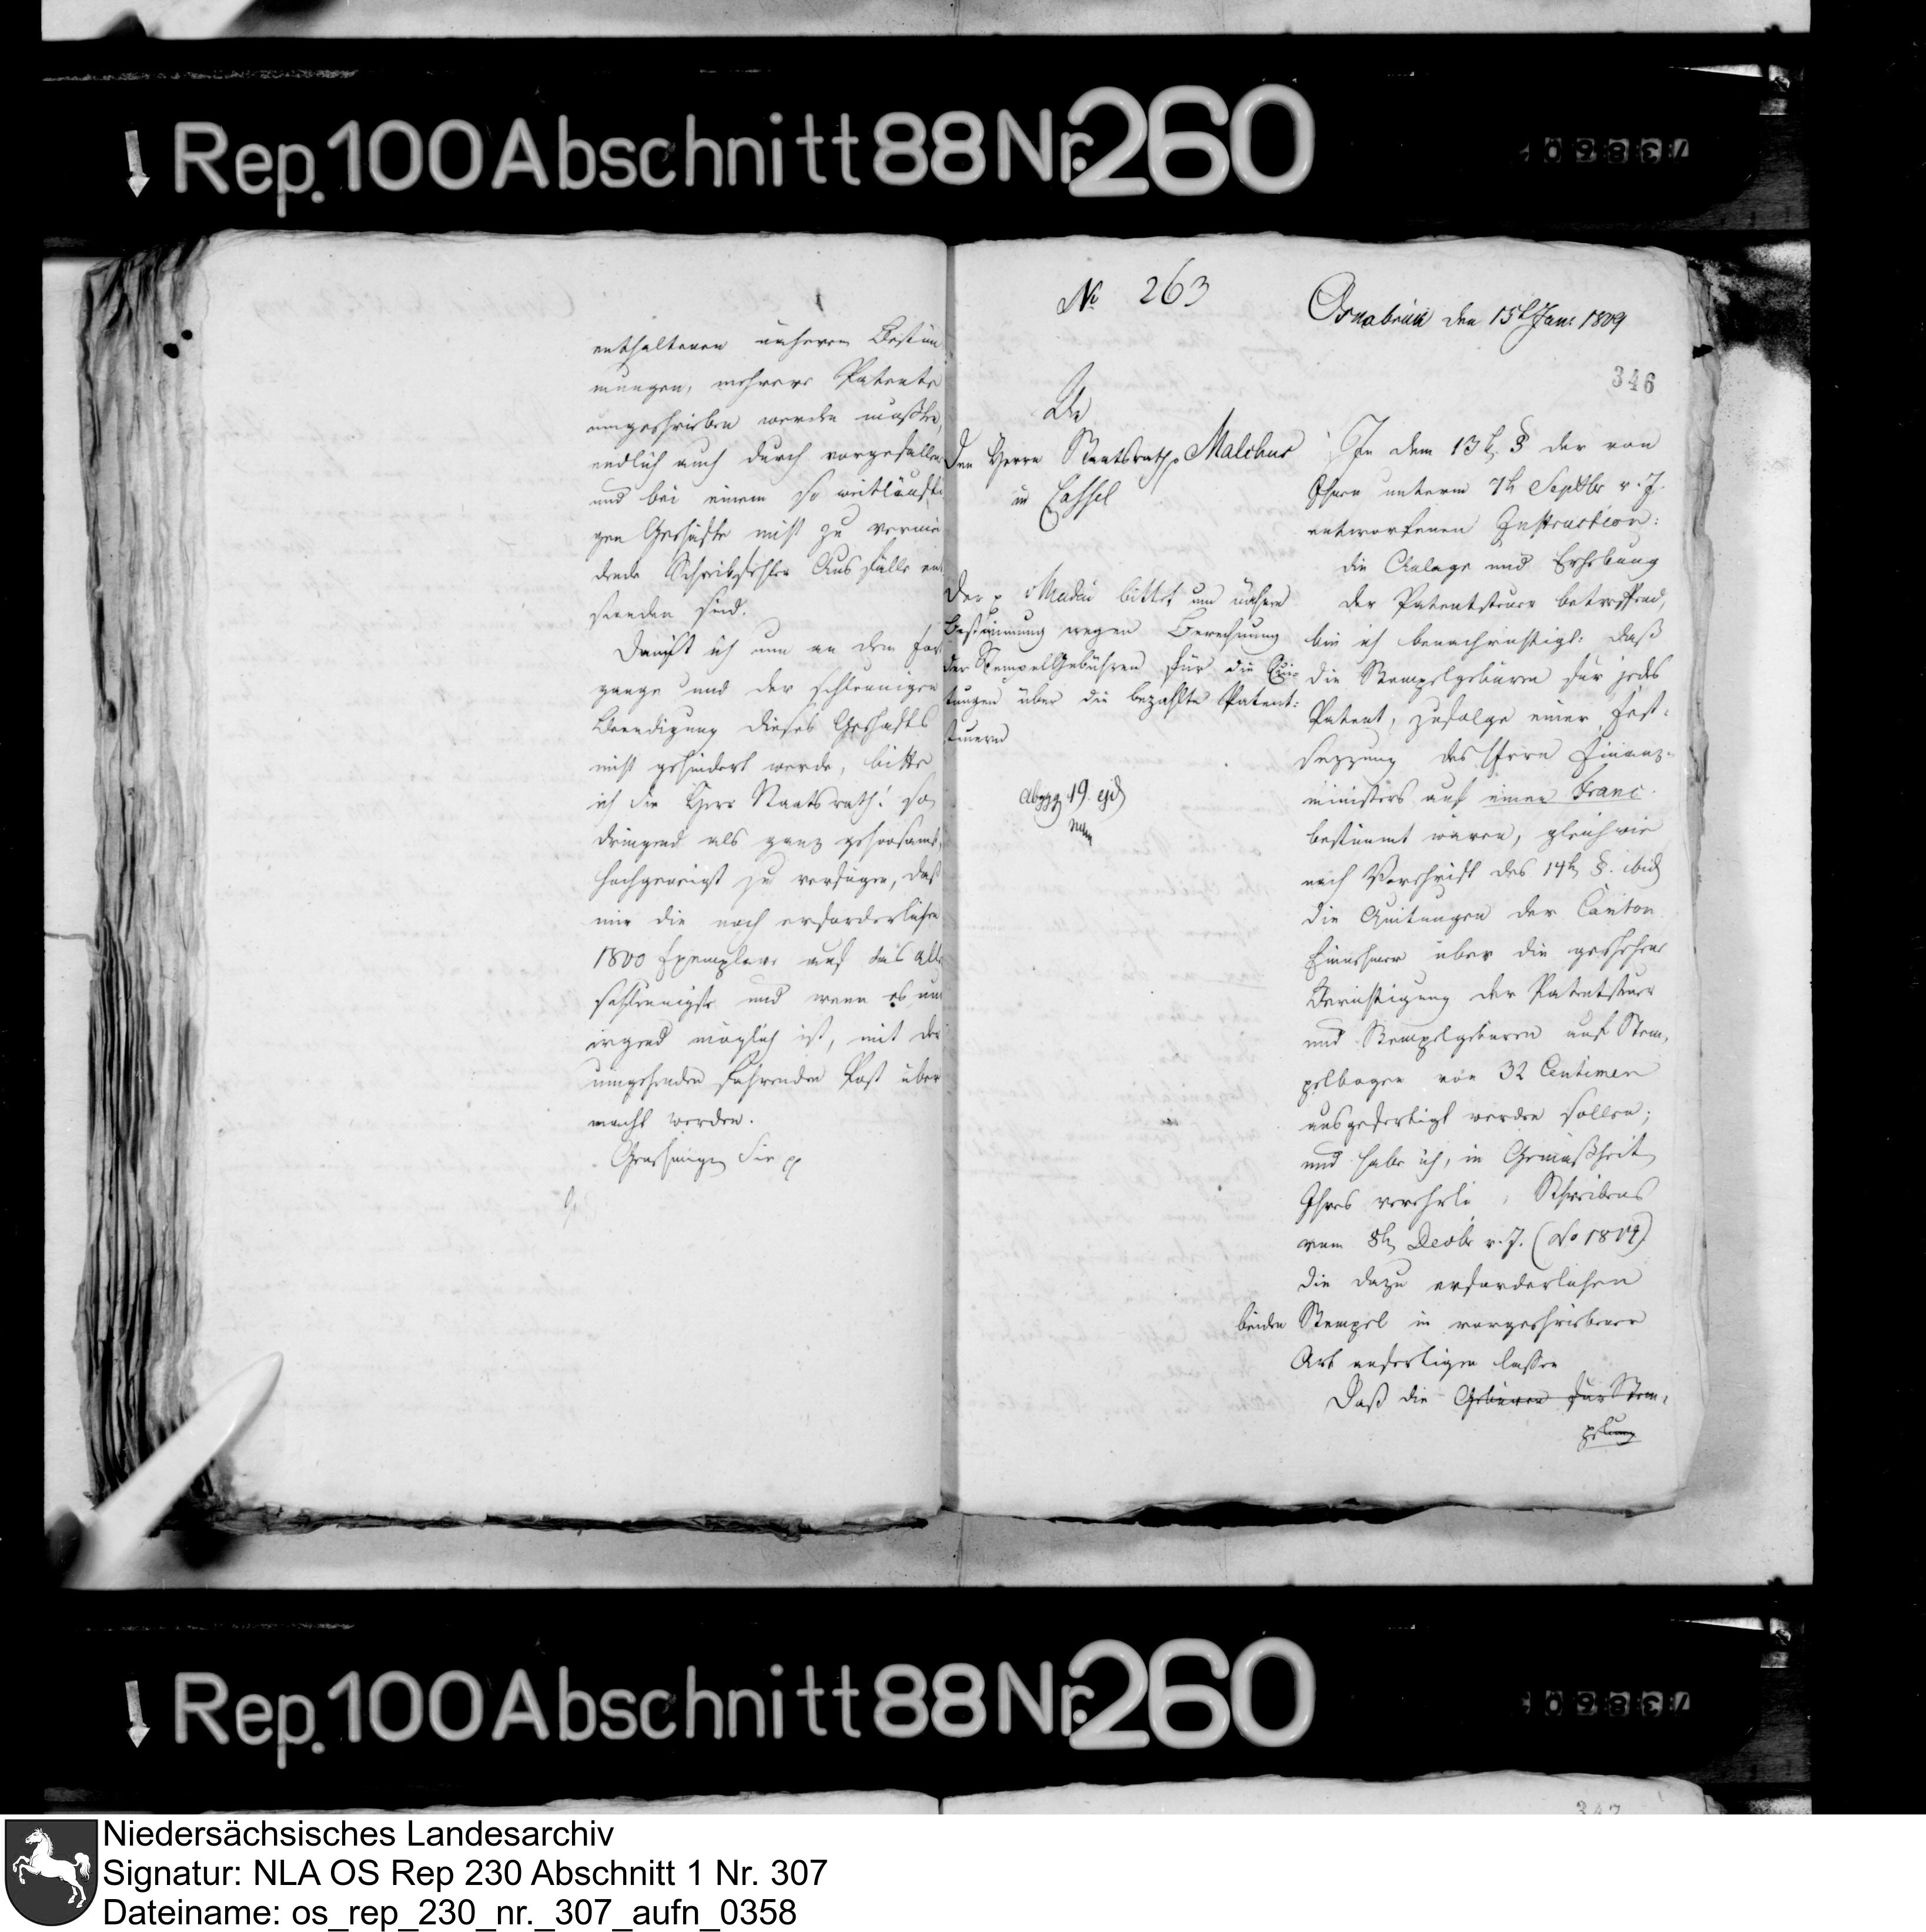 Rep. 100 Abschnitt 88 Nr. 260
enthaltenen näheren Bestim
mungen, mehrere Patente
umgeschrieben werden mußten,
endlich auch durch vorgefallene
und bei einem so weitläufti
gen Geschäfte nicht zu vermei
dende Schreibfehler Ausfälle ent
standen sind.
Damit ich nun an dem Fort
gange und der schleunigen
Beendigung dieses Geschäfts
nicht gehindert werde, bitte
ich Sie Herr Staatsrath! so
dringend als ganz gehorsamst,
hochgeneigt zu verfügen, daß
mir die noch erforderlichen
1800 Exemplare auf das aller
schleunigste und wenn es nur
irgend möglich ist, mit der
umgehenden fahrenden Post über
macht werden.
Genehmigen Sie pp
No 263
Osnabrück den 15t Jan: 1809
346
An
den Herrn Staatsrath p Malchus
in Cassel
Der p v Madai bittet um nähere
Bestimmung wegen Berechnung
der Stempel Gebühren für die Quit
tungen über die bezahlte Patent:
steuern
abggg 19. ejd
In dem 13t § der von
Ihnen unterm 7t Septbr v. J.
entworfenen Instruction:
die Anlage und Erhebung
der Patentsteuer betreffend,
bin ich benachrichtigt: daß
die Stempelgebüren für jedes
Patent, zufolge einer Fest-
sezzung des Herrn Finanz-
ministers auf einen Franc
bestimmt wären, gleichwie
nach Vorschrift des 14t §. ibid
die Quitungen der Canton
Einnehmer über die geschehene
Berichtigung der Patentsteuer
und Stempelgebüren auf Stem,
pelbogen von 32 Centimen
ausgefertigt werden sollen;
und habe ich, in Gemäßheit
Ihres verehrli: Schreibens
vom 8t Decbr v. J. (No 1804)
die dazu erforderlichen
beiden Stempel in vorgeschriebener
Art anfertigen lassen
Daß die Gebüren für Stem,
pelung
Rep. 100 Abschnitt 88 Nr. 260
347
Niedersächsisches Landesarchiv
Signatur: NLA OS Rep 230 Abschnitt 1 Nr. 307
Dateiname: os_rep_230_nr._307_aufn_0358